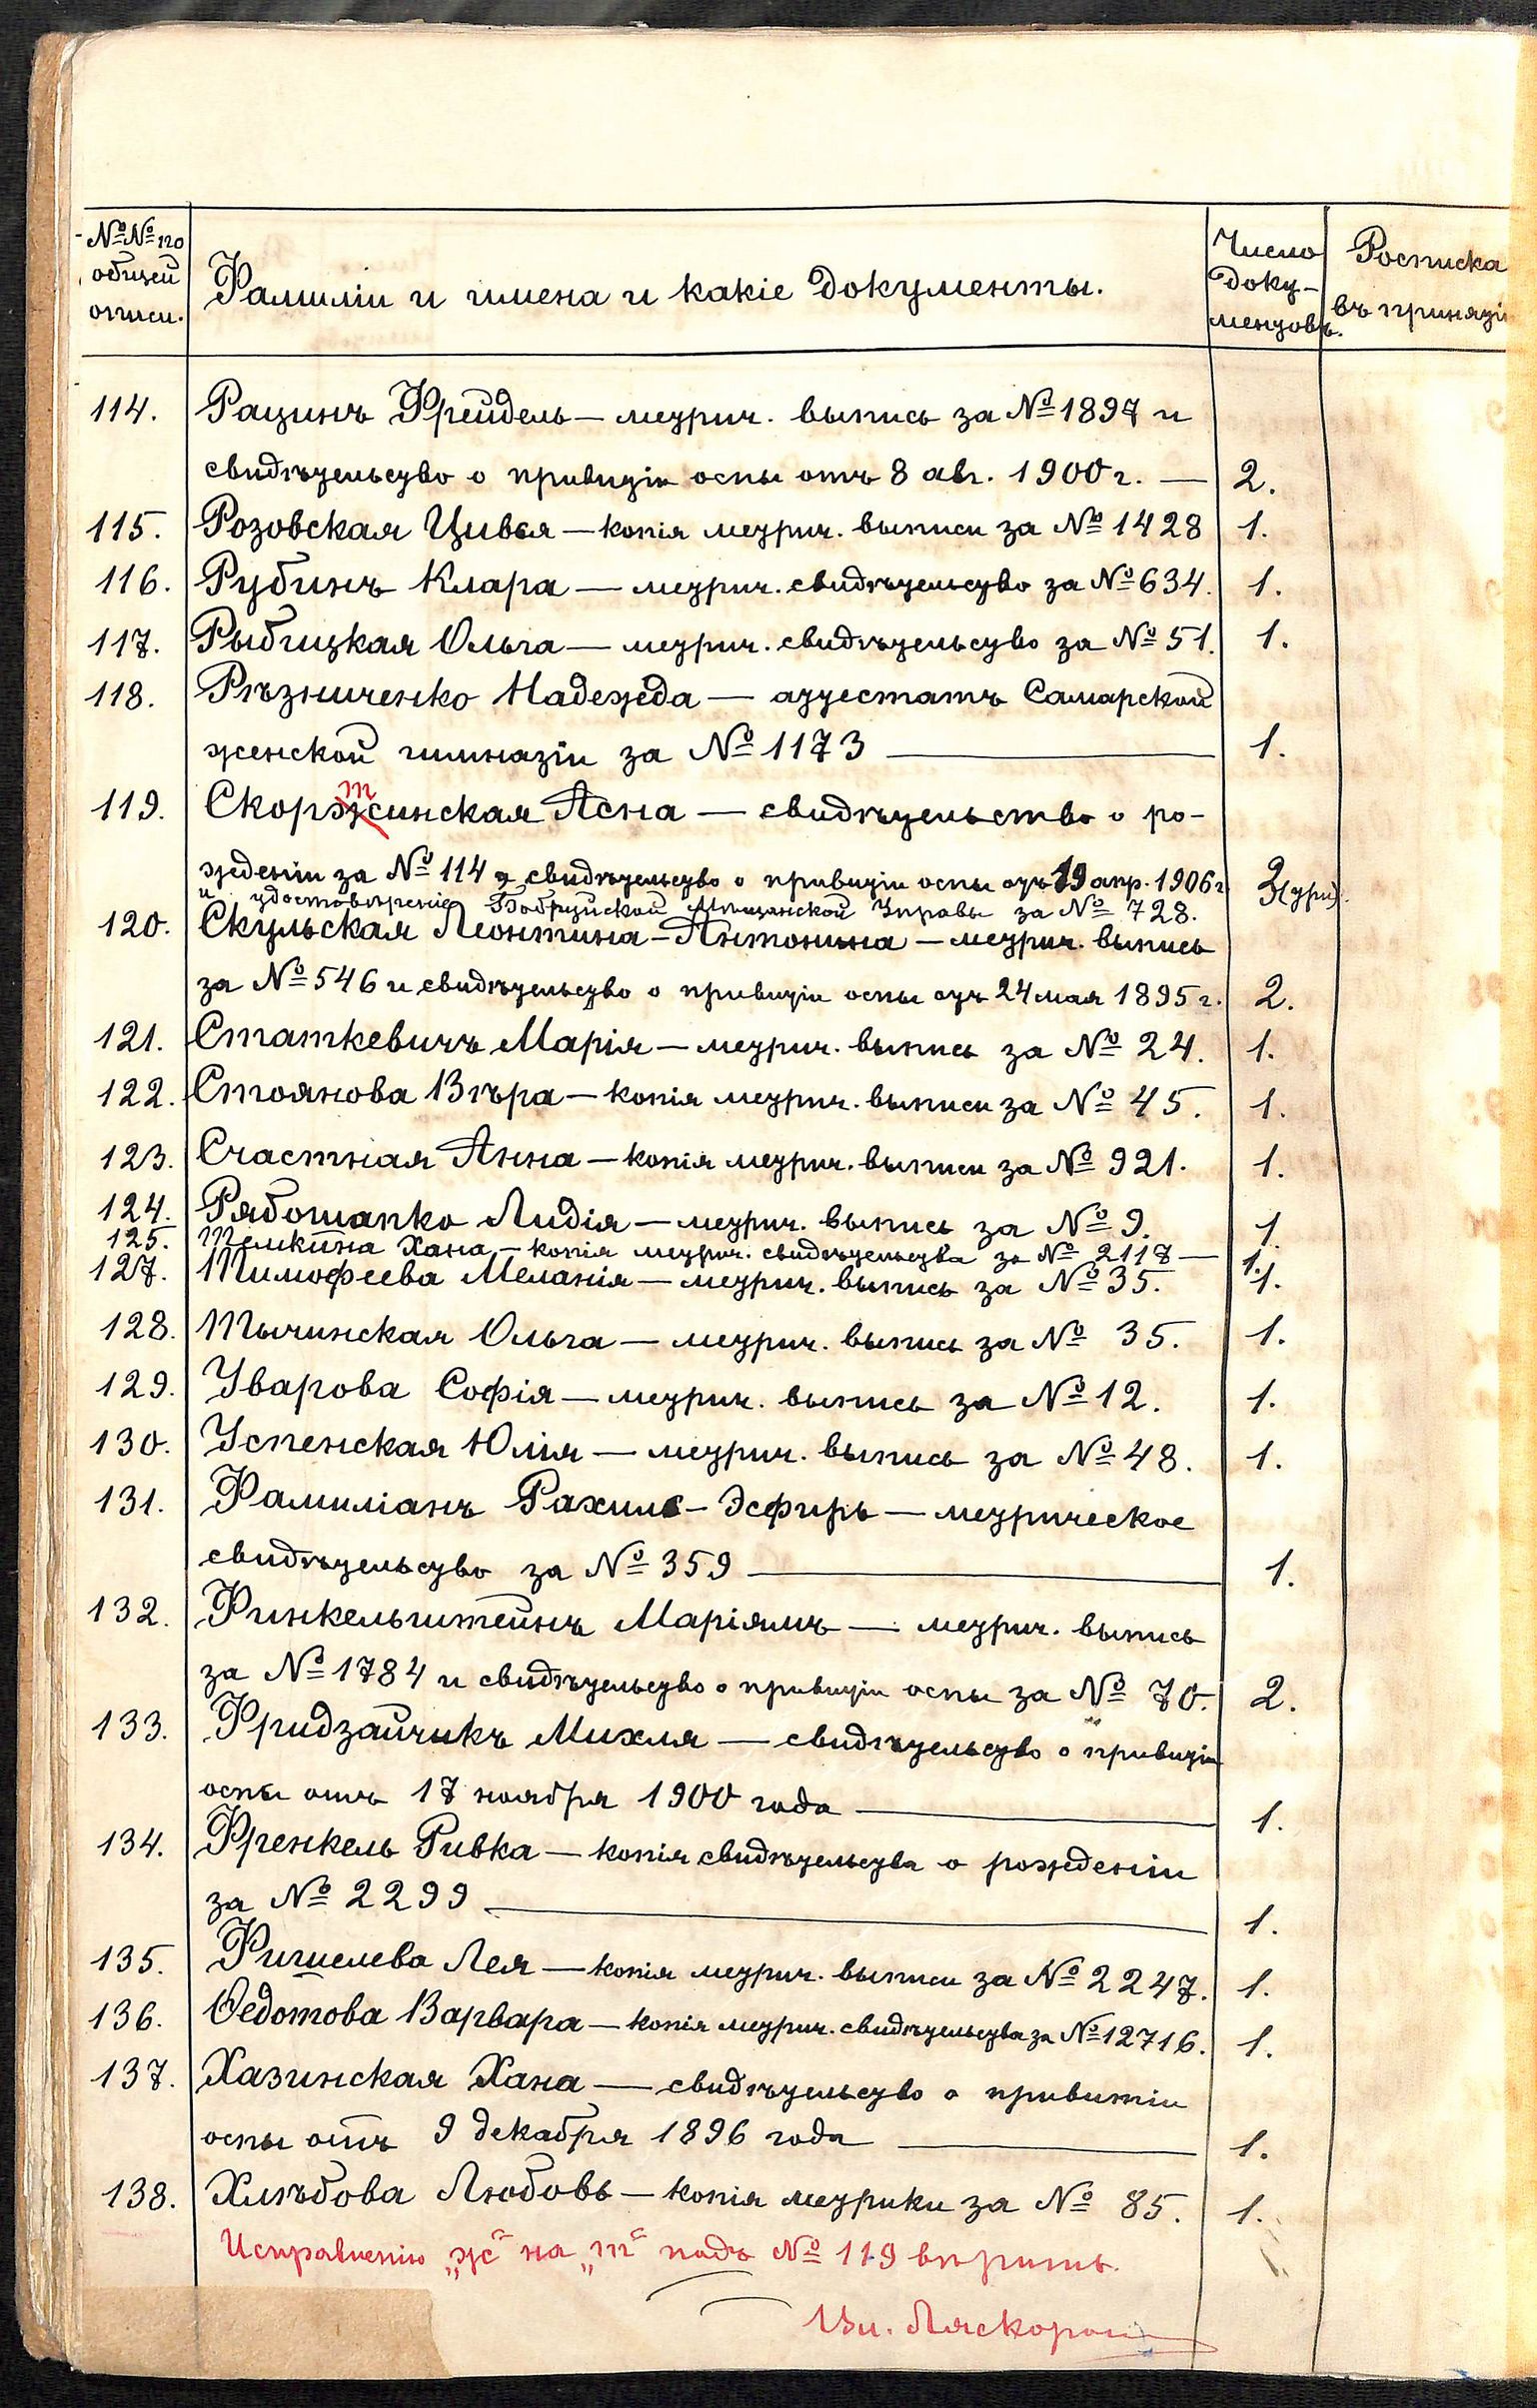 №№ по общей описи.
Фамиліи и имена и какіе документы.
Число документовъ.
Росписка въ принятіи
114. Рацинъ Фрейдель — метрич. выпись за № 1897 и
свидѣтельство о привитіи оспы отъ 8 авг. 1900 г. — 2.
115. Розовская Цивья — копія метрич. выписи за № 1428 1.
116. Рубинъ Клара — метрич. свидѣтельство за № 634. 1.
117. Рыбицкая Ольга — метрич. свидѣтельство за № 51. 1.
118. Рѣзниченко Надежда — аттестатъ Самарской
женской гимназіи за № 1173 — 1.
т
119. Скоржинская Асна — свидѣтельство о ро-
жденіи за № 114 , свидѣтельство о привитіи оспы отъ 19 апр. 1906 г 3 (три).
и удостовѣреніе Бобруйской Мѣщанской Управы за № 728.
120. Скульская Леонтина-Антонина — метрич. выпись
за № 546 и свидѣтельство о привитіи оспы отъ 24 мая 1895 г. 2.
121. Статкевичъ Марія — метрич. выпись за № 24. 1.
122. Стоянова Вѣра — копія метрич. выписи за № 45. 1.
123. Счастная Анна — копія метрич. выписи за № 921. 1.
124. Рябошапко Лидія — метрич. выпись за № 9. 1
125. Темкина Хана — копія метрич. свидѣтельства за № 2117 — 1.
127. Тимофеева Меланія — метрич. выпись за № 35. 1.
128. Тычинская Ольга — метрич. выпись за № 35. 1.
129. Уварова Софія — метрич. выпись за № 12. 1.
130. Успенская Юлія — метрич. выпись за № 48. 1.
131. Фамиліанъ Рахиль-Эсфирь — метрическое
свидѣтельство за № 359 — 1.
132. Финкельштейнъ Маріямъ — метрич. выпись
за № 1784 и свидѣтельство о привитіи оспы за № 70. 2.
133. Фридзайчикъ Михля — свидѣтельство о привитіи
оспы отъ 17 ноября 1900 года — 1.
134. Френкель Ривка — копія свидѣтельства о рожденіи
за № 2299 — 1.
135. Фишелева Лея — копія метрич. выписи за № 2247. 1.
136. Ѳедотова Варвара — копія метрич. свидѣтельства за № 12716. 1.
137. Хазинская Хана — свидѣтельство о привитіи
оспы отъ 9 декабря 1896 года — 1.
138. Хлѣбова Любовь — копія метрики за № 85. 1.
Исправленію „ж“ на „т“ подъ № 119 вѣрить.